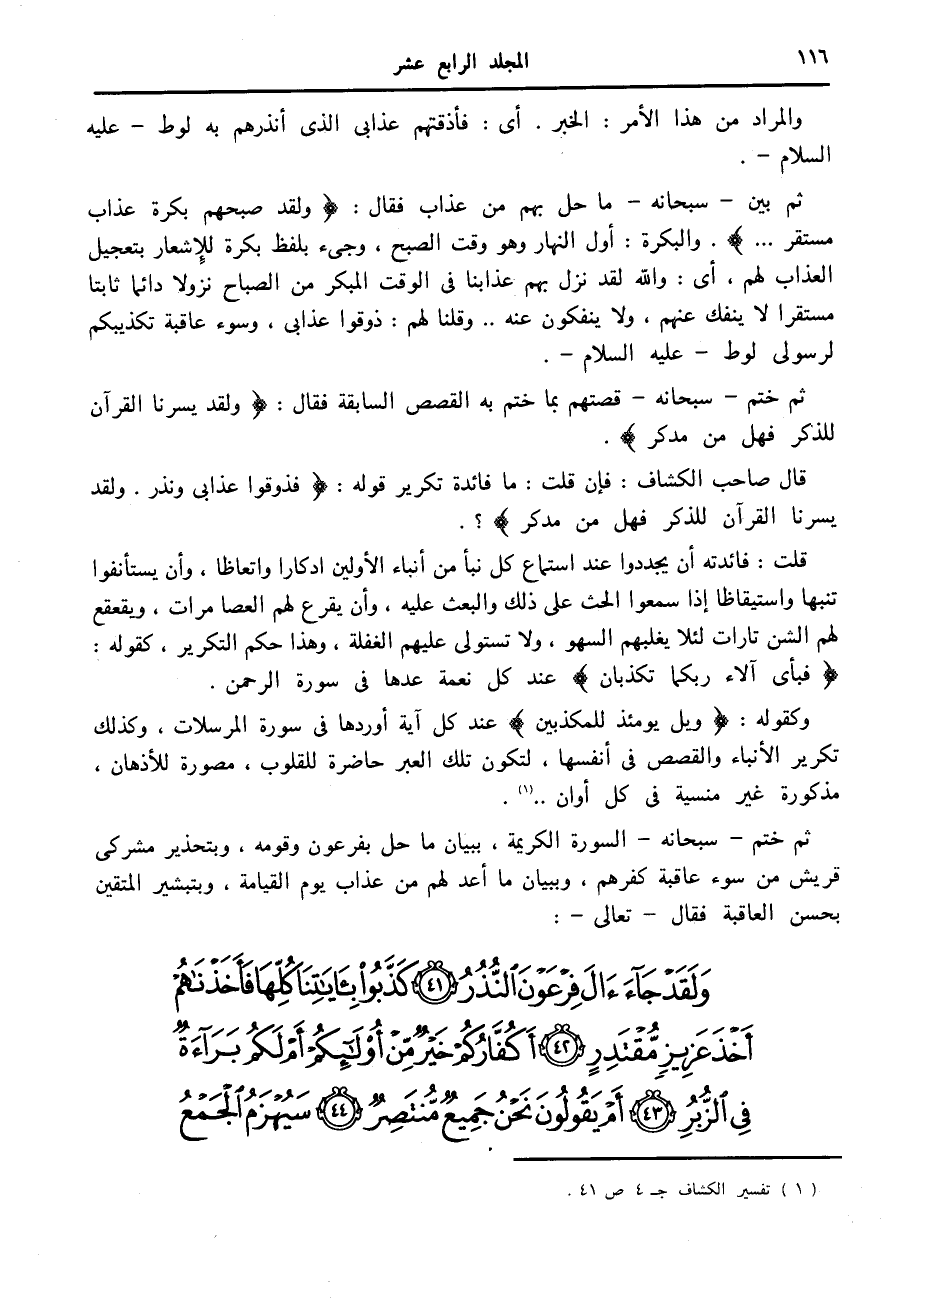 ١١٦
المجلد الرابع عشر
والمراد من هذا الأمر : الخبر . أى : فأذقتهم عذابى الذى أنذرهم به لوط - عليه
السلام - .
ثم بين - سبحانه - ما حل بهم من عذاب فقال : ﴿ ولقد صبحهم بكرة عذاب
مستقر ... ﴾ . والبكرة : أول النهار وهو وقت الصبح ، وجىء بلفظ بكرة للإشعار بتعجيل
العذاب لهم ، أى : والله لقد نزل بهم عذابنا فى الوقت المبكر من الصباح نزولا دائما ثابتا
مستقرا لا ينفك عنهم ، ولا ينفكون عنه .. وقلنا لهم : ذوقوا عذابى ، وسوء عاقبة تكذيبكم
لرسولى لوط - عليه السلام - .
ثم ختم - سبحانه - قصتهم بما ختم به القصص السابقة فقال : ﴿ ولقد يسرنا القرآن
للذكر فهل من مدكر ﴾ .
قال صاحب الكشاف : فإن قلت : ما فائدة تكرير قوله : ﴿ فذوقوا عذابى ونذر . ولقد
يسرنا القرآن للذكر فهل من مدكر ﴾ ؟ .
قلت : فائدته أن يجددوا عند استماع كل نبأ من أنباء الأولين ادكارا واتعاظا ، وأن يستأنفوا
تنبها واستيقاظا إذا سمعوا الحث على ذلك والبعث عليه ، وأن يقرع لهم العصا مرات ، ويقعقع
لهم الشن تارات لئلا يغلبهم السهو ، ولا تستولى عليهم الغفلة ، وهذا حكم التكرير ، كقوله :
﴿ فبأى آلاء ربكما تكذبان ﴾ عند كل نعمة عدها فى سورة الرحمن .
وكقوله : ﴿ ويل يومئذ للمكذبين ﴾ عند كل آية أوردها فى سورة المرسلات ، وكذلك
تكرير الأنباء والقصص فى أنفسها ، لتكون تلك العبر حاضرة للقلوب ، مصورة للأذهان ،
مذكورة غير منسية فى كل أوان ..(١) .
ثم ختم - سبحانه - السورة الكريمة ، ببيان ما حل بفرعون وقومه ، وبتحذير مشركى
قريش من سوء عاقبة كفرهم ، وببيان ما أعد لهم من عذاب يوم القيامة ، وبتبشير المتقين
بحسن العاقبة فقال - تعالى - :
وَلَقَدْ جَآءَ ءَالَ فِرْعَوْنَ ٱلنُّذُرُ ٤١ كَذَّبُوا۟ بِـَٔايَـٰتِنَا كُلِّهَا فَأَخَذْنَـٰهُمْ
أَخْذَ عَزِيزٍ مُّقْتَدِرٍ ٤٢ أَكُفَّارُكُمْ خَيْرٌ مِّنْ أُو۟لَـٰٓئِكُمْ أَمْ لَكُم بَرَآءَةٌ
فِى ٱلزُّبُرِ ٤٣ أَمْ يَقُولُونَ نَحْنُ جَمِيعٌ مُّنتَصِرٌ ٤٤ سَيُهْزَمُ ٱلْجَمْعُ
( ١ ) تفسير الكشاف جـ ٤ ص ٤١ .